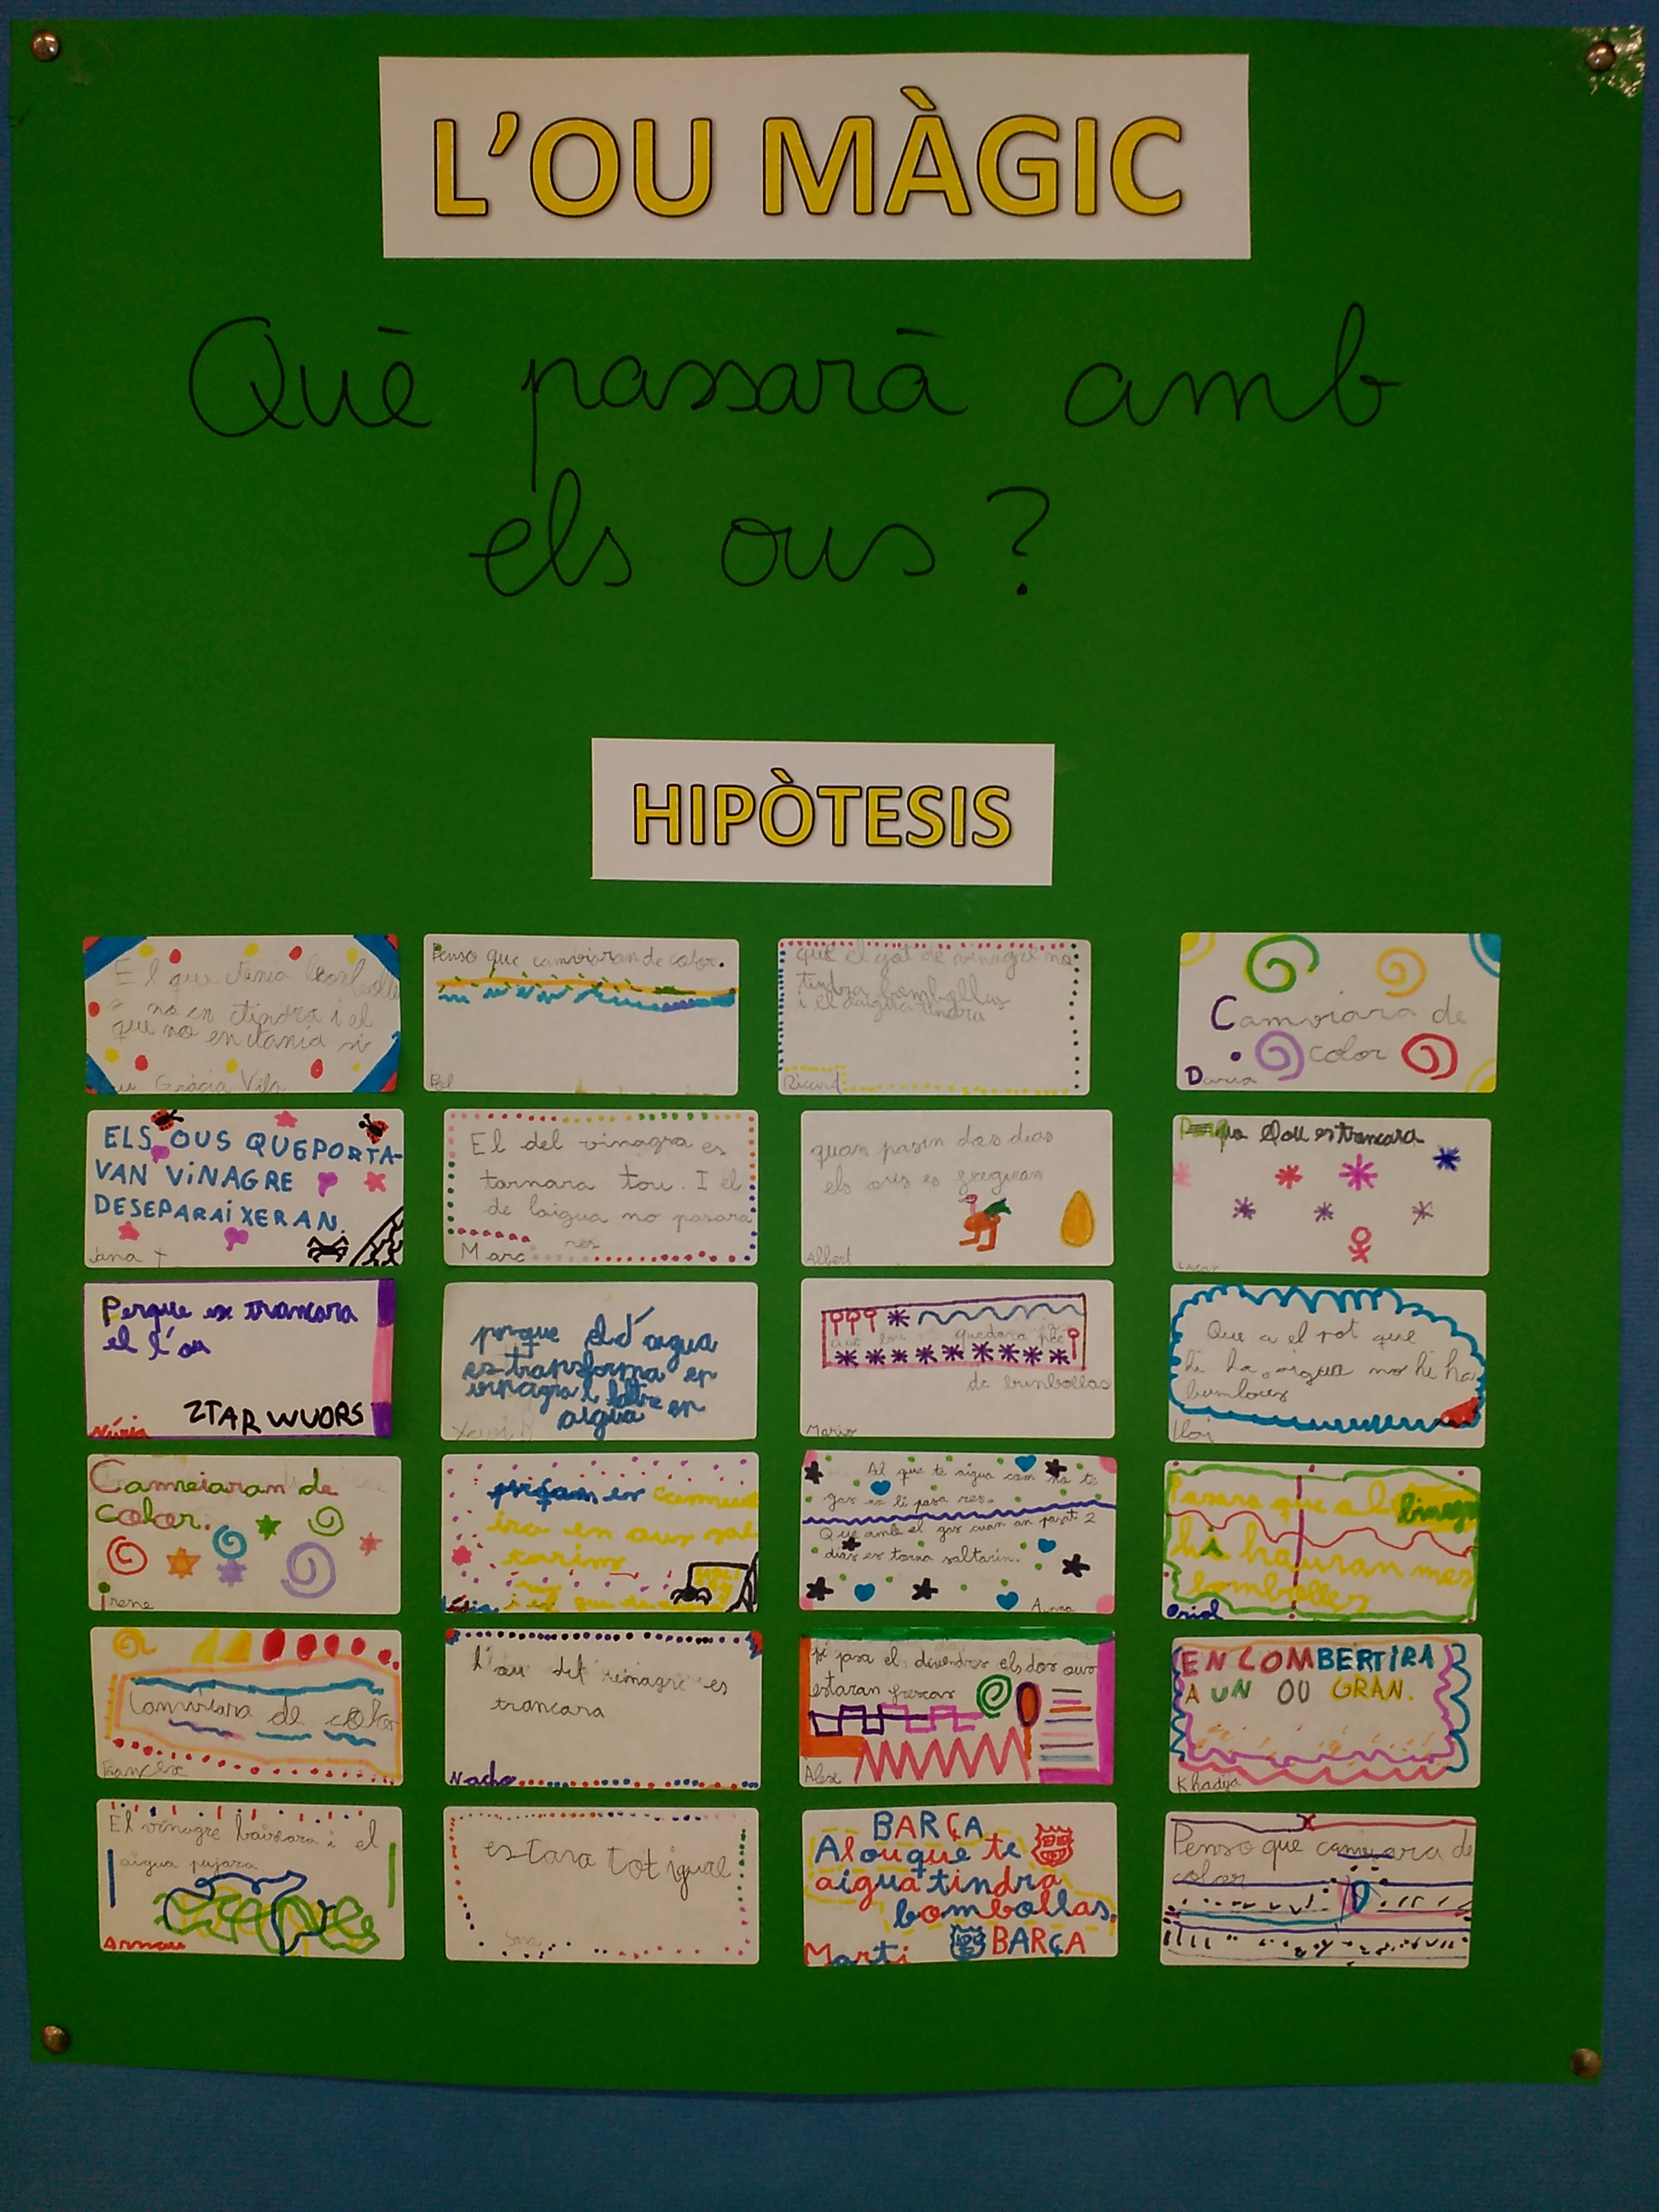 L'OU MÀGIC
Què passarà amb
els ous?
HIPÒTESIS
El que tenia
no en tindra i el
que no en tania si
Gràcia Vila
Penso que camviaran de color.
Pol
que el got de vinagre no
tindra bombollas
i el daigua tindra
Ricard
Camviara de
color
Daria
ELS OUS QUE PORTA-
VAN VINAGRE
DESEPARAIXERAN.
Jana
El del vinagra es
tornara tou. I el
de laigua no pasara
res
Marc
quan pasin dos dias
els ous es
Albert
l'ou es trancara
Perque es trancara
el l'ou
ZTAR WUORS
Núria
porque el d'aigua
es transforma en
vinagra i laltre en
aigua
Xavi
quedara
de bunbollas
Mario
Que a el pot que
hi ha aigua no hi ha
Camviaran de
color.
Irene
en ous sal
tarins
i el que
Al que te aigua com no te
gas no li pasa res.
Que amb el gas cuan an pasat 2
dias es torna saltarin.
Anna
Pasara que al
hi hauran mes
bombolles
Oriol
Camviara de color
l'ou del vinagre es
trancara
Nacho
si pasa el divendres els dos ous
estaran frescos
Alex
EN COMBERTIRA
A UN OU GRAN.
Khadija
El vinagre baixara i el
aigua pujara
Arnau
estara tot igual
BARÇA
Al ou que te
aigua tindra
bombollas.
BARÇA
Marti
Penso que camviara de
color